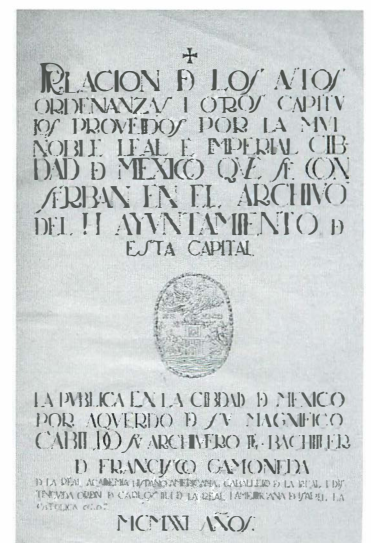 RELACION D LOS AVTOS
ORDENANZAS I OTROS CAPITV
LOS PROVEIDOS POR LA MVI
NOBLE LEAL E IMPERIAL CIB
DAD D MEXICO QVE SE CON
SERBAN EN EL ARCHIVO
DEL H AYVNTAMIENTO D
ESTA CAPITAL
LA PVBLICA EN LA CIBDAD D MEXICO
POR AQVERDO D SV MAGNIFICO
CABILDO SV ARCHIVERO BACHILLER
D FRANCISCO GAMONEDA
D LA REAL ACADEMIA HISPANO AMERICANA, CABALLERO D LA REAL I DIS
TINGVIDA ORDEN D CARLOS III I D LA REAL I AMERICANA D ISABEL LA
CATOLICA
MCMXXI AÑOS.